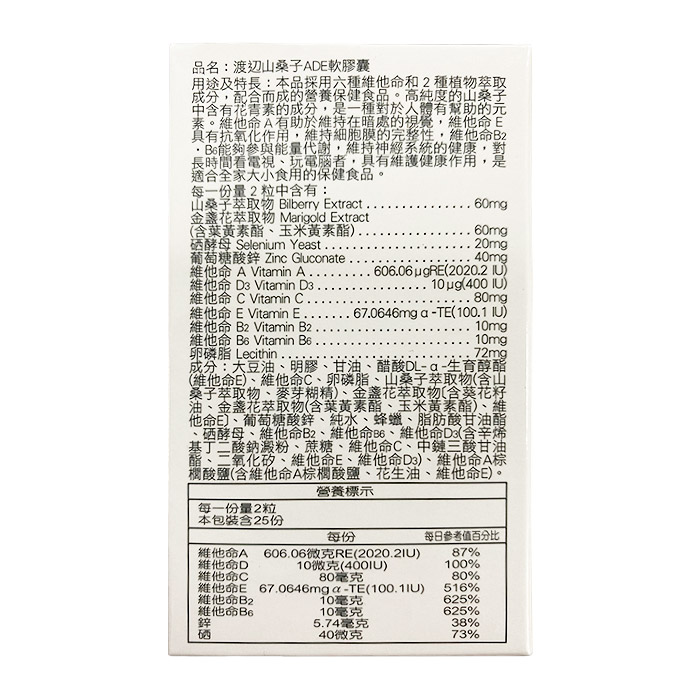 品名：渡辺山桑子ADE軟膠囊
用途及特長：本品採用六種維他命和2種植物萃取
成分，配合而成的營養保健食品。高純度的山桑子
中含有花青素的成分，是一種對於人體有幫助的元
素。維他命A有助於維持在暗處的視覺，維他命E
具有抗氧化作用，維持細胞膜的完整性，維他命B2
、B6能夠參與能量代謝，維持神經系統的健康，對
長時間看電視、玩電腦者，具有維護健康作用，是
適合全家大小食用的保健食品。
每一份量2粒中含有：
山桑子萃取物 Bilberry Extract...............60mg
金盞花萃取物 Marigold Extract
(含葉黃素酯、玉米黃素酯)...............60mg
硒酵母 Selenium Yeast...............20mg
葡萄糖酸鋅 Zinc Gluconate...............40mg
維他命 A Vitamin A.........606.06μgRE(2020.2 IU)
維他命 D3 Vitamin D3...............10μg(400 IU)
維他命 C Vitamin C...............80mg
維他命 E Vitamin E.......67.0646mgα-TE(100.1 IU)
維他命 B2 Vitamin B2...............10mg
維他命 B6 Vitamin B6...............10mg
卵磷脂 Lecithin...............72mg
成分：大豆油、明膠、甘油、醋酸DL-α-生育醇酯
(維他命E)、維他命C、卵磷脂、山桑子萃取物(含山
桑子萃取物、麥芽糊精)、金盞花萃取物〔含葵花籽
油、金盞花萃取物(含葉黃素酯、玉米黃素酯)、維
他命E〕、葡萄糖酸鋅、純水、蜂蠟、脂肪酸甘油酯
、硒酵母、維他命B2、維他命B6、維他命D3(含辛烯
基丁二酸鈉澱粉、蔗糖、維他命C、中鏈三酸甘油
酯、二氧化矽、維他命E、維他命D3)、維他命A棕
櫚酸鹽(含維他命A棕櫚酸鹽、花生油、維他命E)。
營養標示
每一份量2粒
本包裝含25份
每份 每日參考值百分比
維他命A 606.06微克RE(2020.2IU) 87%
維他命D 10微克(400IU) 100%
維他命C 80毫克 80%
維他命E 67.0646mgα-TE(100.1IU) 516%
維他命B2 10毫克 625%
維他命B6 10毫克 625%
鋅 5.74毫克 38%
硒 40微克 73%